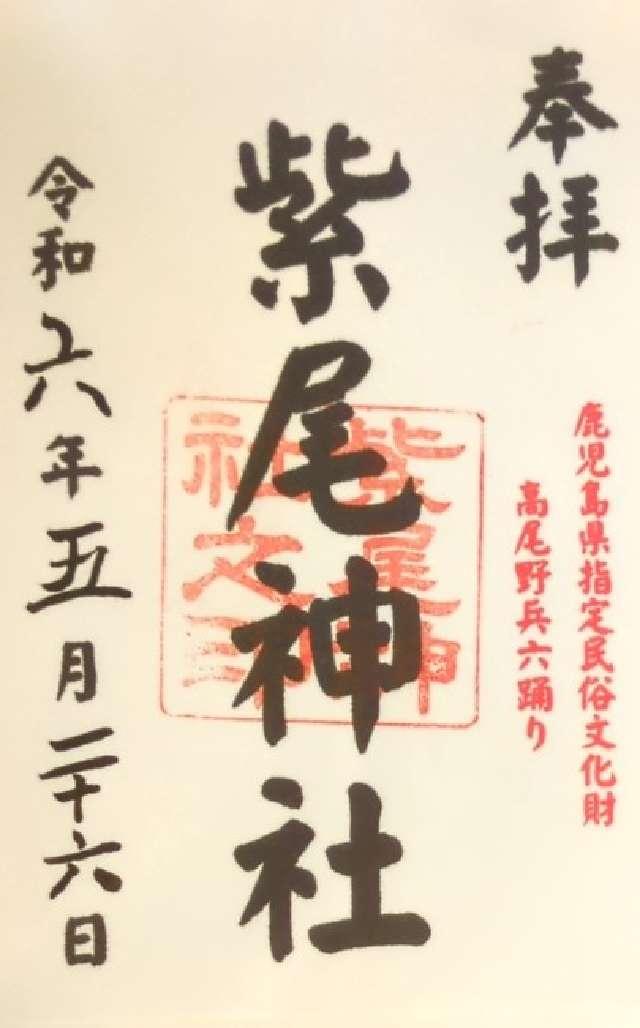 奉拝
鹿児島県指定民俗文化財
高尾野兵六踊り
紫尾神社
紫尾神
社之印
令和六年五月二十六日